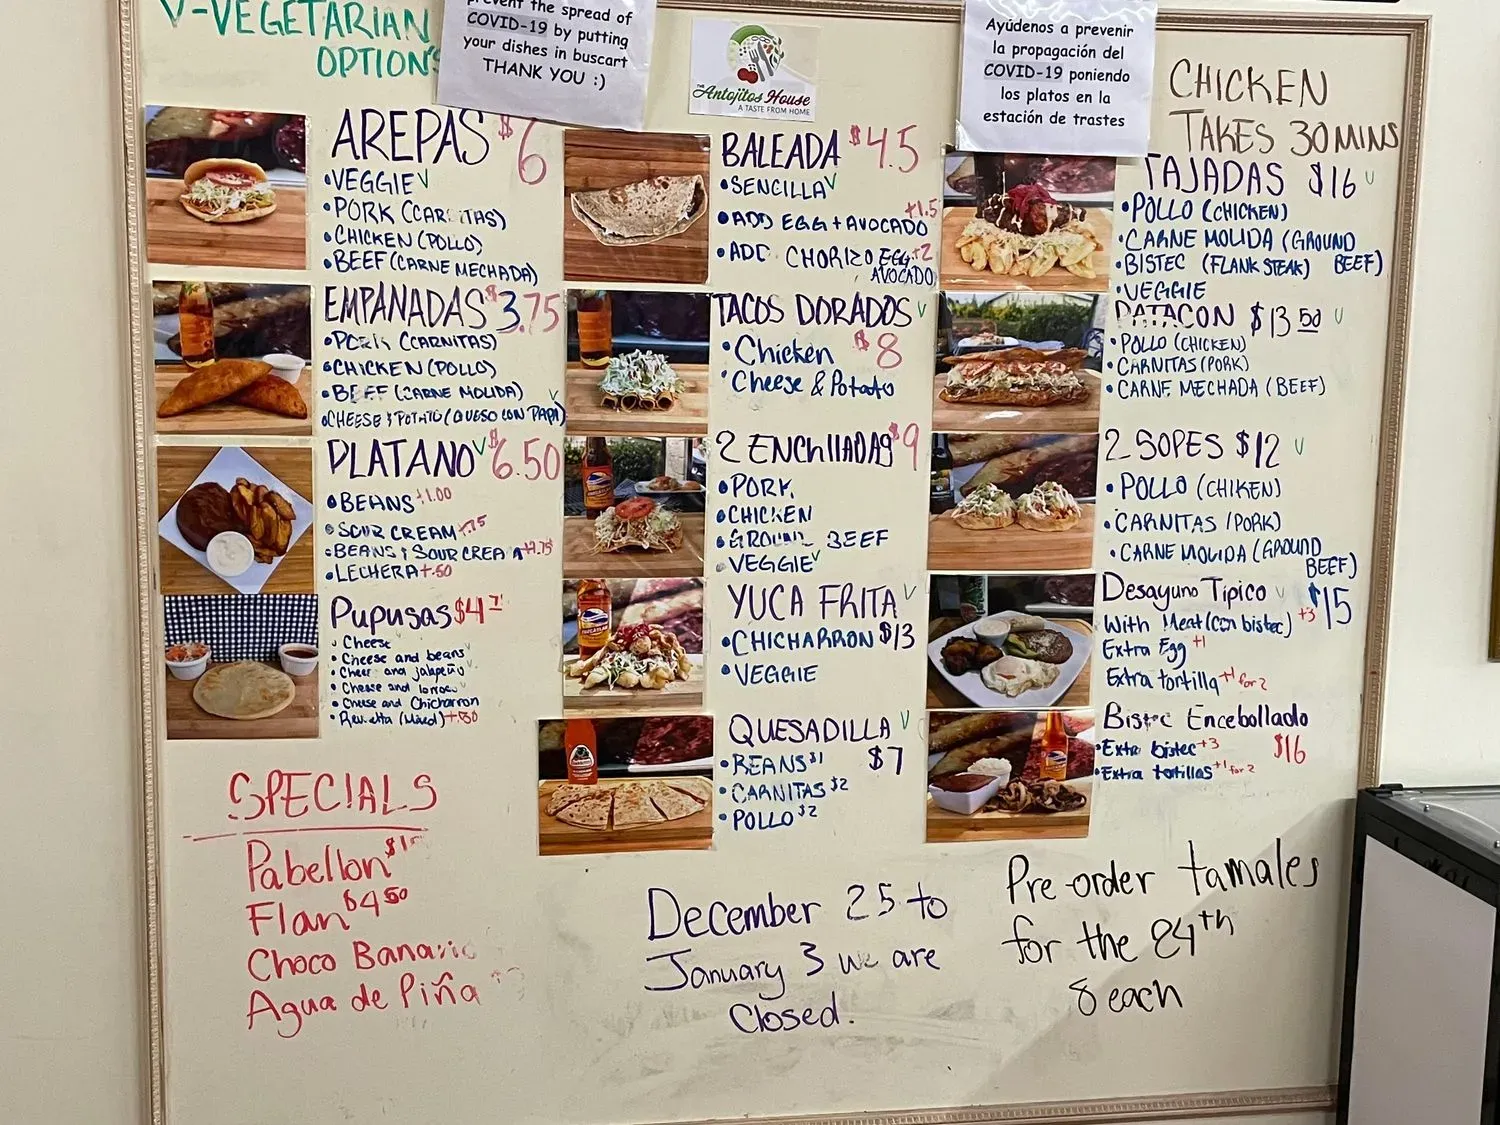 V-VEGETARIAN
OPTIONS
prevent the spread of
COVID-19 by putting
your dishes in buscart
THANK YOU :)
THE
Antojitos House
A TASTE FROM HOME
Ayúdenos a prevenir
la propagación del
COVID-19 poniendo
los platos en la
estación de trastes
CHICKEN
TAKES 30MINS
AREPAS $6
•VEGGIE V
•PORK (CARNITAS)
•CHICKEN (POLLO)
•BEEF (CARNE MECHADA)
EMPANADAS $3.75
•PORK (CARNITAS)
•CHICKEN (POLLO)
•BEEF (CARNE MOLIDA) V
•CHEESE & POTATO (QUESO CON PAPA)
PLATANO V $6.50
•BEANS +1.00
•SOUR CREAM +.75
•BEANS & SOUR CREAM +1.75
•LECHERA +.50
Pupusas $4
• Cheese V
• Cheese and beans V
• and jalapeño V
• Cheese and loroco V
• Cheese and Chicharron
• Revuelta (Mixed) +.50
SPECIALS
Pabellon
Flan $4 50
Choco Banano
Agua de Piña
BALEADA $4.5
•SENCILLA V
•ADD EGG + AVOCADO +1.5
•ADD CHORIZO EGG +2
AVOCADO
TACOS DORADOS V
•Chicken $8
•Cheese & Potato
2 ENCHILLADAS $9
•PORK
•CHICKEN
•GROUND BEEF
•VEGGIE V
YUCA FRITA V
•CHICHARRON $13
•VEGGIE
QUESADILLA V
•BEANS $1 $7
•CARNITAS $2
•POLLO $2
TAJADAS $16 V
•POLLO (CHICKEN)
•CARNE MOLIDA (GROUND
BEEF)
•BISTEC (FLANK STEAK)
•VEGGIE
PATACON $13 50 V
•POLLO (CHICKEN)
•CARNITAS (PORK)
•CARNE MECHADA (BEEF)
2 SOPES $12 V
•POLLO (CHIKEN)
•CARNITAS (PORK)
•CARNE MOLIDA (GROUND
BEEF)
Desayuno Tipico V $15
With Meat (con bistec) +3
Extra Egg +1
Extra tortilla +1 for 2
Bistec Encebollado
•Extra bistec +3 $16
•Extra tortillas +1 for 2
December 25 to
January 3 we are
Closed.
Pre-order tamales
for the 24th
8 each